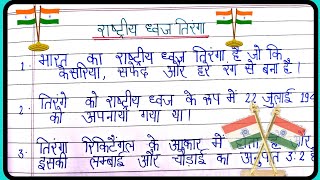 राष्ट्रीय ध्वज तिरंगा
1. भारत का राष्ट्रीय ध्वज तिरंगा है जो कि
केसरिया, सफेद और हरे रंग से बना है।
2. तिरंगे को राष्ट्रीय ध्वज के रूप में 22 जुलाई 194
को अपनाया गया था।
3. तिरंगा रिक्टैंगल के आकार में
इसकी लम्बाई और चौड़ाई का अनुपात 3:2 है